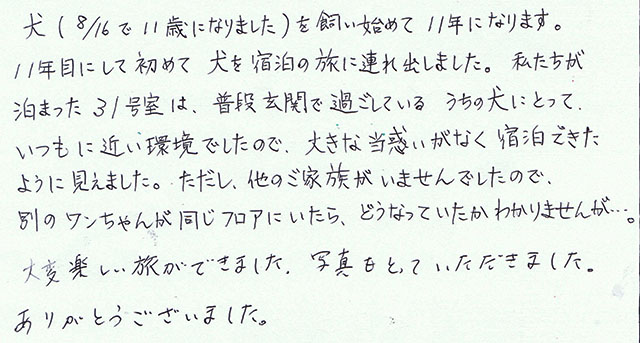 犬(8/16で11歳になりました)を飼い始めて11年になります。
11年目にして初めて犬を宿泊の旅に連れ出しました。私たちが
泊まった31号室は、普段玄関で過ごしているうちの犬にとって、
いつもに近い環境でしたので、大きな当惑いがなく宿泊できた
ように見えました。ただし、他のご家族がいませんでしたので、
別のワンちゃんが同じフロアにいたら、どうなっていたかわかりませんが…。
大変楽しい旅ができました。写真もとっていただきました。
ありがとうございました。